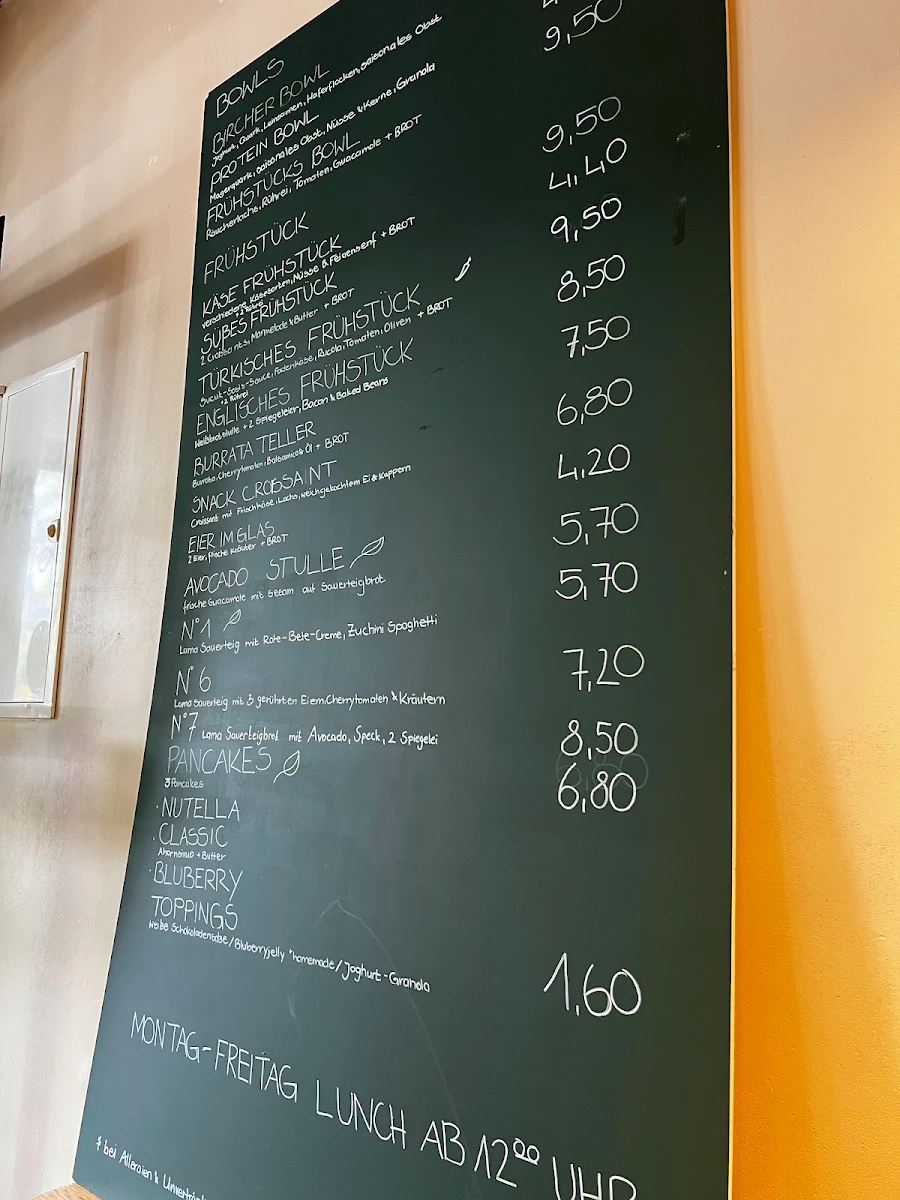 BOWLS
BIRCHER BOWL
Joghurt, Quark, Leinsamen, Haferflocken, saisonales Obst
PROTEIN BOWL
Magerquark, saisonales Obst, Nüsse & Kerne, Granola
FRÜHSTÜCKS BOWL 9,50
Räucherlachs, Rührei, Tomaten, Guacamole + BROT
FRÜHSTÜCK
KÄSE FRÜHSTÜCK 9,50
verschiedene Käsesorten, Nüsse & Feigensenf + BROT
+2 Rührei
SÜßES FRÜHSTÜCK 4,40
2 Croissants, Marmelade & Butter + BROT
TÜRKISCHES FRÜHSTÜCK 9,50
Sucuk-Sosis-Sauce, Fadenkäse, Rucola, Tomaten, Oliven + BROT
+2 Rührei
ENGLISCHES FRÜHSTÜCK 8,50
Weißbrotstulle + 2 Spiegeleier, Bacon & Baked Beans
BURRATA TELLER 7,50
Burrata, Cherrytomaten, Balsamico & Öl + BROT
SNACK CROISSAINT 6,80
Croissant mit Frischkäse, Lachs, weichgekochtem Ei & Kappern
EIER IM GLAS 4,20
2 Eier, frische Kräuter + BROT
AVOCADO STULLE 5,70
frische Guacamole mit Sesam auf Sauerteigbrot
N°1 5,70
Lama Sauerteig mit Rote-Bete-Creme, Zuchini Spaghetti
N°6 7,20
Lama Sauerteig mit 3 gerührten Eiern, Cherrytomaten & Kräutern
N°7 Lama Sauerteigbrot mit Avocado, Speck, 2 Spiegelei 8,50
PANCAKES 6,80
3 Pancakes
·NUTELLA
·CLASSIC
Ahornsirup + Butter
·BLUBERRY
TOPPINGS 1,60
Weiße Schokoladensoße/Bluberryjelly *homemade/Joghurt-Granola
MONTAG-FREITAG LUNCH AB 12°° UHR
* bei Allergien &